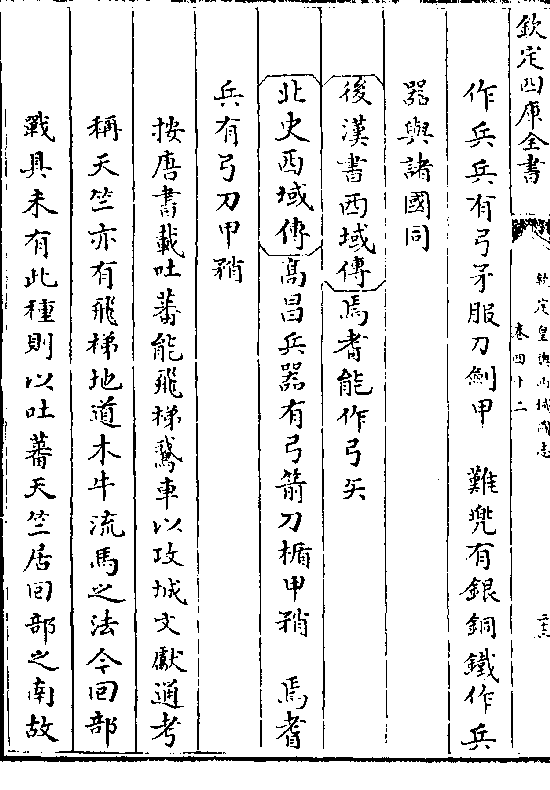 欽定四庫全書
欽定皇輿西域圖志
卷四十二
二十三
作兵兵有弓矛服刀劍甲　難兜有銀銅鐵作兵
器與諸國同
後漢書西域傳焉耆能作弓矢
北史西域傳高昌兵器有弓箭刀楯甲矟　焉耆
兵有弓刀甲矟
按唐書載吐蕃能飛梯鵞車以攻城文獻通考
稱天竺亦有飛梯地道木牛流馬之法今回部
戰具未有此種則以吐蕃天竺居回部之南故